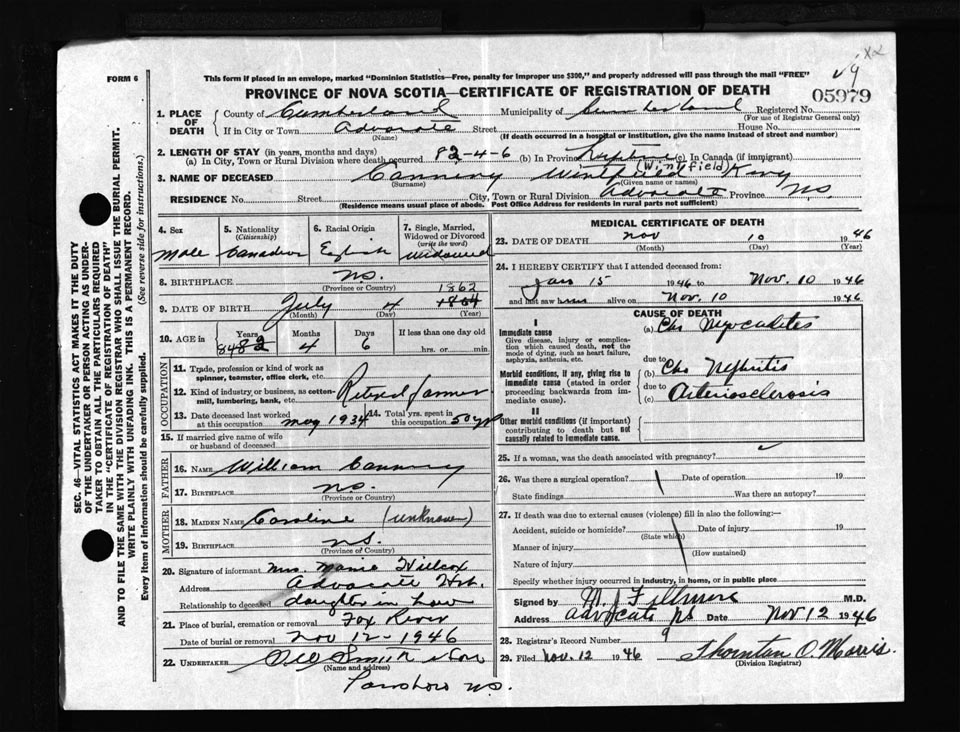 x2
v9
FORM 6
This form if placed in an envelope, marked "Dominion Statistics—Free, penalty for improper use $300," and properly addressed will pass through the mail "FREE"
PROVINCE OF NOVA SCOTIA—CERTIFICATE OF REGISTRATION OF DEATH
05979
1. PLACE OF DEATH
County of Cumberland Municipality of Cumberland Registered No.
(For use of Registrar General only)
If in City or Town Advocate Street House No.
(Name) (If death occurred in a hospital or institution, give the name instead of street and number)
2. LENGTH OF STAY (in years, months and days)
(a) In City, Town or Rural Division where death occurred 82-4-6 (b) In Province (c) In Canada (if immigrant)
(Winfield)
3. NAME OF DECEASED Canning Winfield King
(Surname) (Given name or names)
RESIDENCE No. Street City, Town or Rural Division Advocate Province N.S.
(Residence means usual place of abode. Post Office Address for residents in rural parts not sufficient)
4. Sex
Male
5. Nationality (Citizenship)
Canadian
6. Racial Origin
English
7. Single, Married, Widowed or Divorced (write the word)
Widowed
8. BIRTHPLACE N.S.
(Province or Country)
1862
9. DATE OF BIRTH July 4 1864
(Month) (Day) (Year)
10. AGE in Years Months Days If less than one day old
84 82 4 6 hrs. or min.
OCCUPATION
11. Trade, profession or kind of work as spinner, teamster, office clerk, etc.
12. Kind of industry or business, as cotton-mill, lumbering, bank, etc.
Retired farmer
13. Date deceased last worked at this occupation May 1934
14. Total yrs. spent in this occupation 50 yr
15. If married give name of wife or husband of deceased
FATHER
16. NAME William Canning
17. BIRTHPLACE N.S.
(Province or Country)
MOTHER
18. MAIDEN NAME Caroline (unknown)
19. BIRTHPLACE N.S.
(Province of Country)
20. Signature of informant Mrs. Mamie Willcox
Address Advocate Hrb.
Relationship to deceased daughter in law
21. Place of burial, cremation or removal Fox River
Date of burial or removal Nov 12-1946
22. UNDERTAKER Smith & Son
(Name and address)
Parrsboro N.S.
MEDICAL CERTIFICATE OF DEATH
23. DATE OF DEATH Nov 10 1946
(Month) (Day)
24. I HEREBY CERTIFY that I attended deceased from:
Jan 15 1946 to Nov. 10 1946
and last saw him alive on Nov. 10 1946
CAUSE OF DEATH
I
Immediate cause
Give disease, injury or complication which caused death, not the mode of dying, such as heart failure, asphyxia, asthenia, etc.
(a) Chr Myocarditis
due to
Morbid conditions, if any, giving rise to immediate cause (stated in order proceeding backwards from immediate cause).
(b) Chr Nephritis
due to
(c) Arteriosclerosis
II
Other morbid conditions (if important) contributing to death but not causally related to immediate cause.
25. If a woman, was the death associated with pregnancy?
26. Was there a surgical operation? Date of operation 19
State findings Was there an autopsy?
27. If death was due to external causes (violence) fill in also the following:—
Accident, suicide or homicide? Date of injury 19
(State which)
Manner of injury
(How sustained)
Nature of injury
Specify whether injury occurred in industry, in home, or in public place
Signed by M J Fillmore M.D.
Address Advocate NS Date Nov 12 1946
28. Registrar's Record Number 9
29. Filed Nov. 12 1946 Thornton O. Morris.
(Division Registrar)
SEC. 46—VITAL STATISTICS ACT MAKES IT THE DUTY
OF THE UNDERTAKER OR PERSON ACTING AS UNDER-
TAKER TO OBTAIN ALL THE PARTICULARS REQUIRED
IN THE "CERTIFICATE OF REGISTRATION OF DEATH"
AND TO FILE THE SAME WITH THE DIVISION REGISTRAR WHO SHALL ISSUE THE BURIAL PERMIT.
WRITE PLAINLY WITH UNFADING INK. THIS IS A PERMANENT RECORD.
Every item of information should be carefully supplied. (See reverse side for instructions.)